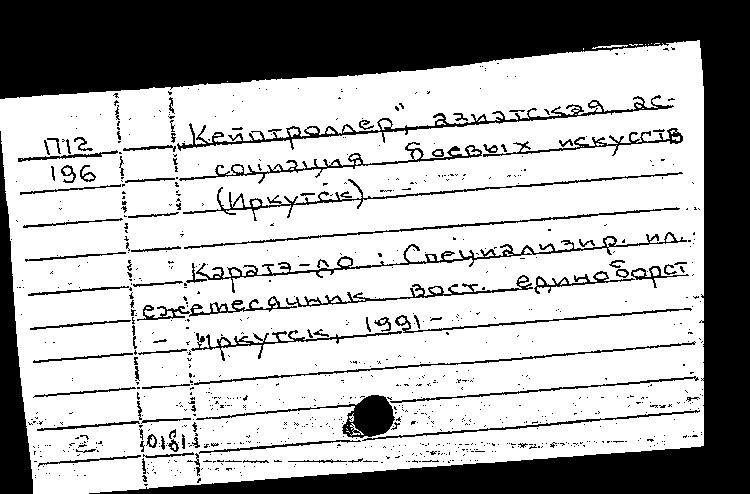 П12
196
„Кейптроллер", азиатская ас-
социация боевых искусств
(Иркутск)
Каратэ-до : Специализир. ил.
ежемесячник вост. единоборст
- Иркутск, 1991 -
2
0181